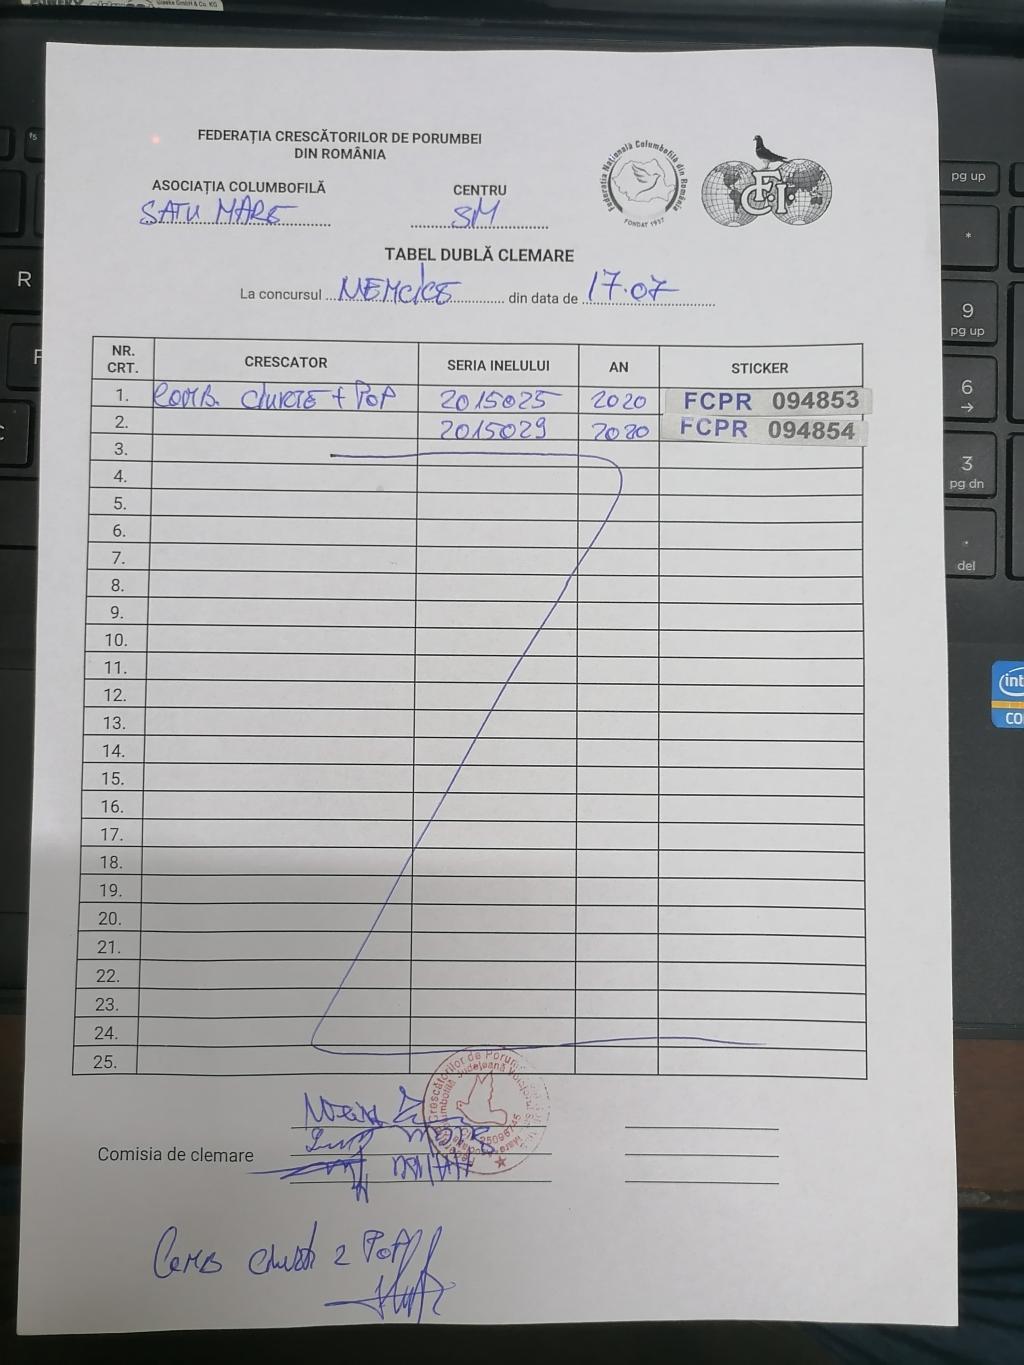 FEDERAȚIA CRESCĂTORILOR DE PORUMBEI
DIN ROMÂNIA
ASOCIAȚIA COLUMBOFILĂ
SATU MARE
CENTRU
SM
Federația Națională Columbofilă din România
FONDAT 1957
F.C.I.
TABEL DUBLĂ CLEMARE
La concursul NEMCICE din data de 17.07
NR. CRT. CRESCATOR SERIA INELULUI AN STICKER
1. COMB. CHIRTE + POP 2015025 2020 FCPR 094853
2. 2015029 2020 FCPR 094854
3.
4.
5.
6.
7.
8.
9.
10.
11.
12.
13.
14.
15.
16.
17.
18.
19.
20.
21.
22.
23.
24.
25.
Comisia de clemare
COMB
POP
R
pg up
*
9
pg up
6
3
pg dn
.
del